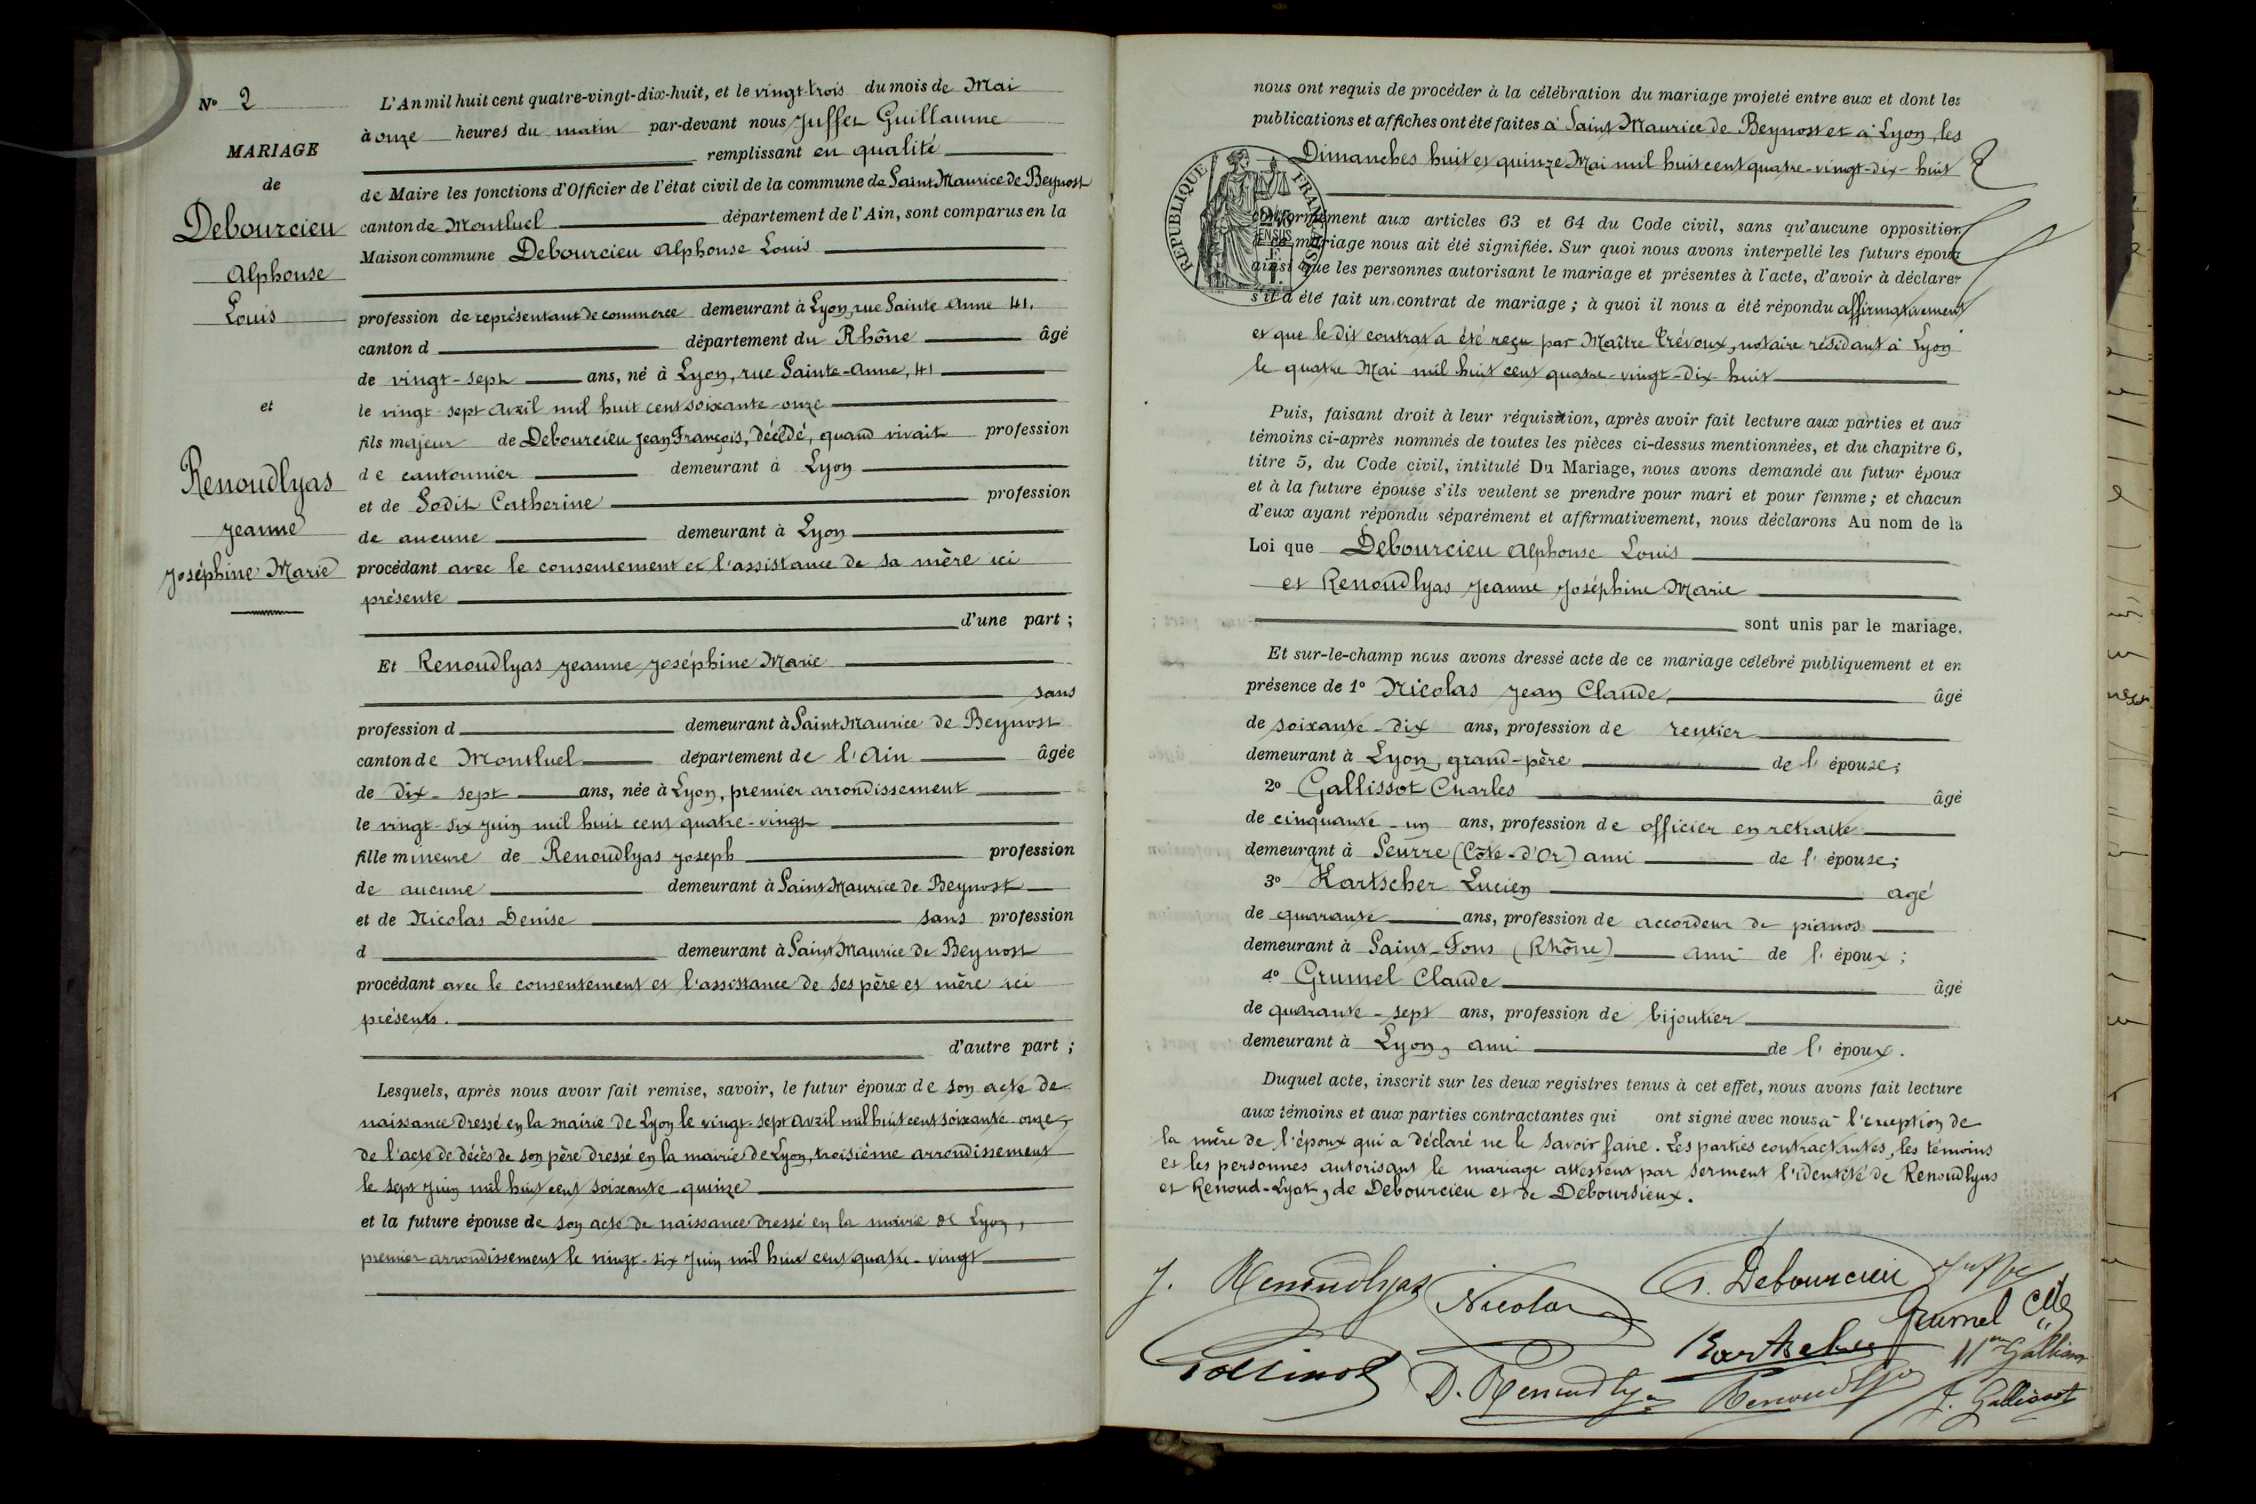 N° 2
MARIAGE
de
Debourcieu
Alphonse
Louis
et
Renoudlyas
Jeanne
Joséphine Marie
L'An mil huit cent quatre-vingt-dix-huit, et le vingt-trois du mois de Mai
à onze heures du matin par-devant nous Juffet Guillaume
remplissant en qualité
de Maire les fonctions d'Officier de l'état civil de la commune de Saint Maurice de Beynost
canton de Montluel département de l'Ain, sont comparus en la
Maison commune Debourcieu Alphonse Louis
profession de représentant de commerce demeurant à Lyon, rue Sainte Anne 41.
canton d département du Rhône âgé
de vingt-sept ans, né à Lyon, rue Sainte-Anne, 41
le vingt-sept avril mil huit cent soixante-onze
fils majeur de Debourcieu Jean François, décédé, quand vivait profession
de cantonnier demeurant à Lyon
et de Sodit Catherine profession
de aucune demeurant à Lyon
procédant avec le consentement et l'assistance de sa mère ici
présente
d'une part ;
Et Renoudlyas Jeanne Joséphine Marie
sans
profession d demeurant à Saint Maurice de Beynost
canton de Montluel département de l'Ain âgée
de dix-sept ans, née à Lyon, premier arrondissement
le vingt-six Juin mil huit cent quatre-vingt
fille mineure de Renoudlyas Joseph profession
de aucune demeurant à Saint Maurice de Beynost
et de Nicolas Denise sans profession
d demeurant à Saint Maurice de Beynost
procédant avec le consentement et l'assistance de ses père et mère ici
présents.
d'autre part ;
Lesquels, après nous avoir fait remise, savoir, le futur époux de son acte de
naissance dressé en la mairie de Lyon le vingt-sept avril mil huit cent soixante-onze,
de l'acte de décès de son père dressé en la mairie de Lyon, troisième arrondissement
le sept Juin mil huit cent soixante-quinze
et la future épouse de son acte de naissance dressé en la mairie de Lyon,
premier arrondissement le vingt-six Juin mil huit cent quatre-vingt
nous ont requis de procéder à la célébration du mariage projeté entre eux et dont les
publications et affiches ont été faites à Saint Maurice de Beynost et à Lyon, les
Dimanches huit et quinze Mai mil huit cent quatre-vingt-dix-huit
RÉPUBLIQUE FRANÇAISE
conformément aux articles 63 et 64 du Code civil, sans qu'aucune opposition
à ce mariage nous ait été signifiée. Sur quoi nous avons interpellé les futurs époux
ainsi que les personnes autorisant le mariage et présentes à l'acte, d'avoir à déclarer
s'il a été fait un contrat de mariage ; à quoi il nous a été répondu affirmativement
et que le dit contrat a été reçu par Maître Trévoux, notaire résidant à Lyon
le quatre Mai mil huit cent quatre-vingt-dix-huit
Puis, faisant droit à leur réquisition, après avoir fait lecture aux parties et aux
témoins ci-après nommés de toutes les pièces ci-dessus mentionnées, et du chapitre 6,
titre 5, du Code civil, intitulé Du Mariage, nous avons demandé au futur époux
et à la future épouse s'ils veulent se prendre pour mari et pour femme ; et chacun
d'eux ayant répondu séparément et affirmativement, nous déclarons Au nom de la
Loi que Debourcieu Alphonse Louis
et Renoudlyas Jeanne Joséphine Marie
sont unis par le mariage.
Et sur-le-champ nous avons dressé acte de ce mariage célébré publiquement et en
présence de 1° Nicolas Jean Claude âgé
de soixante-dix ans, profession de rentier
demeurant à Lyon, grand-père de l'épouse ;
2° Gallissot Charles âgé
de cinquante-un ans, profession de officier en retraite
demeurant à Seurre (Côte-d'Or) ami de l'épouse ;
3° Kartscher Lucien agé
de quarante ans, profession de accordeur de pianos
demeurant à Saint-Fons (Rhône) ami de l'époux ;
4° Grumel Claude âgé
de quarante-sept ans, profession de bijoutier
demeurant à Lyon, ami de l'époux.
Duquel acte, inscrit sur les deux registres tenus à cet effet, nous avons fait lecture
aux témoins et aux parties contractantes qui ont signé avec nous à l'exception de
la mère de l'époux qui a déclaré ne le savoir faire. Les parties contractantes, les témoins
et les personnes autorisant le mariage attestent par serment l'identité de Renoudlyas
et Renoud-Lyat, de Debourcieu et de Deboursieux.
J. Renoudlyas Nicolas A. Debourcieu Juffet
Grumel Cde
Gallissot D. Renoudlyas Kartscher Renoudlyas
J. Gallissot